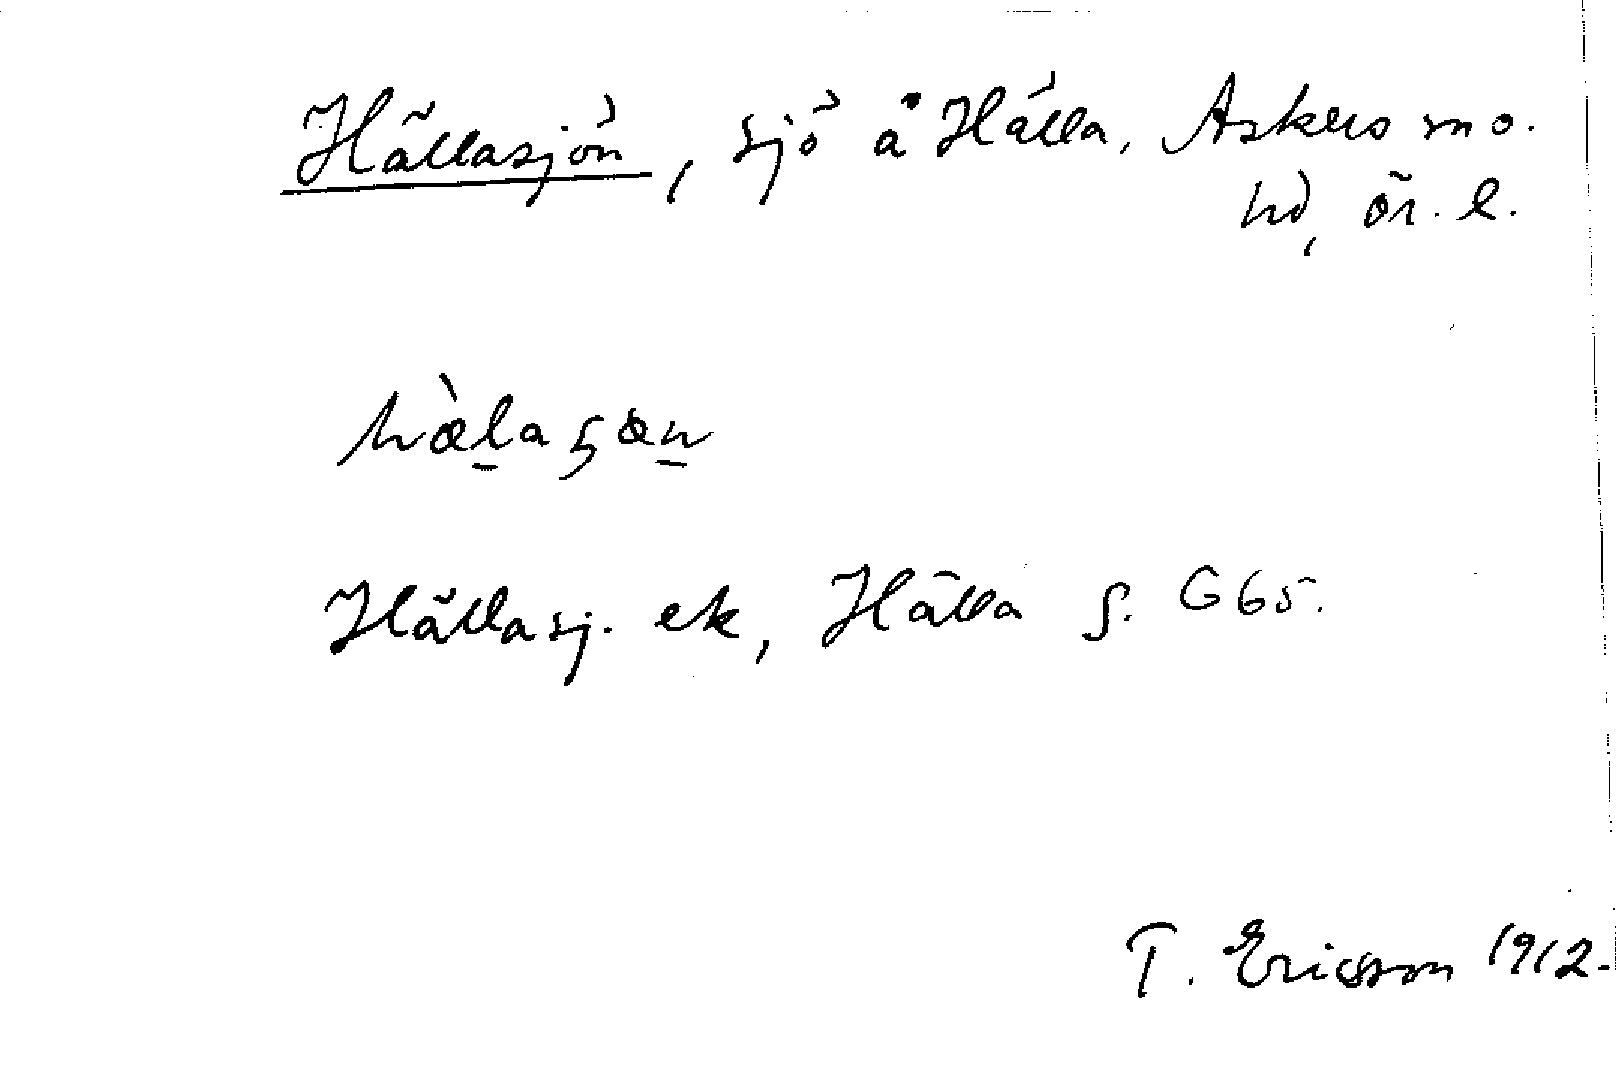 Hållasjön, sjö å Hålla, Askers sn o.
hd, ör. l.
hàla ʂøn
Hållasj. ek, Hålla s. G65.
T. Ericsson 1912.